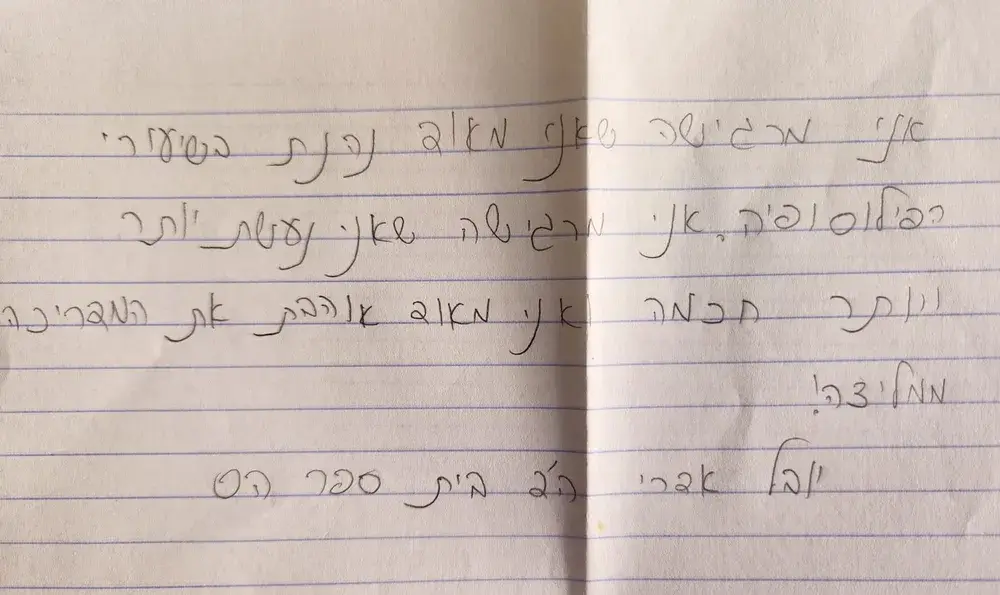 אני מרגישה שאני מאוד נהנת בשיעורי
הפילוסופיה. אני מרגישה שאני נעשת יותר
ויותר חכמה ואני מאוד אוהבת את המדריכה
ממליצה!
יובל אברי ה'2 בית ספר הס